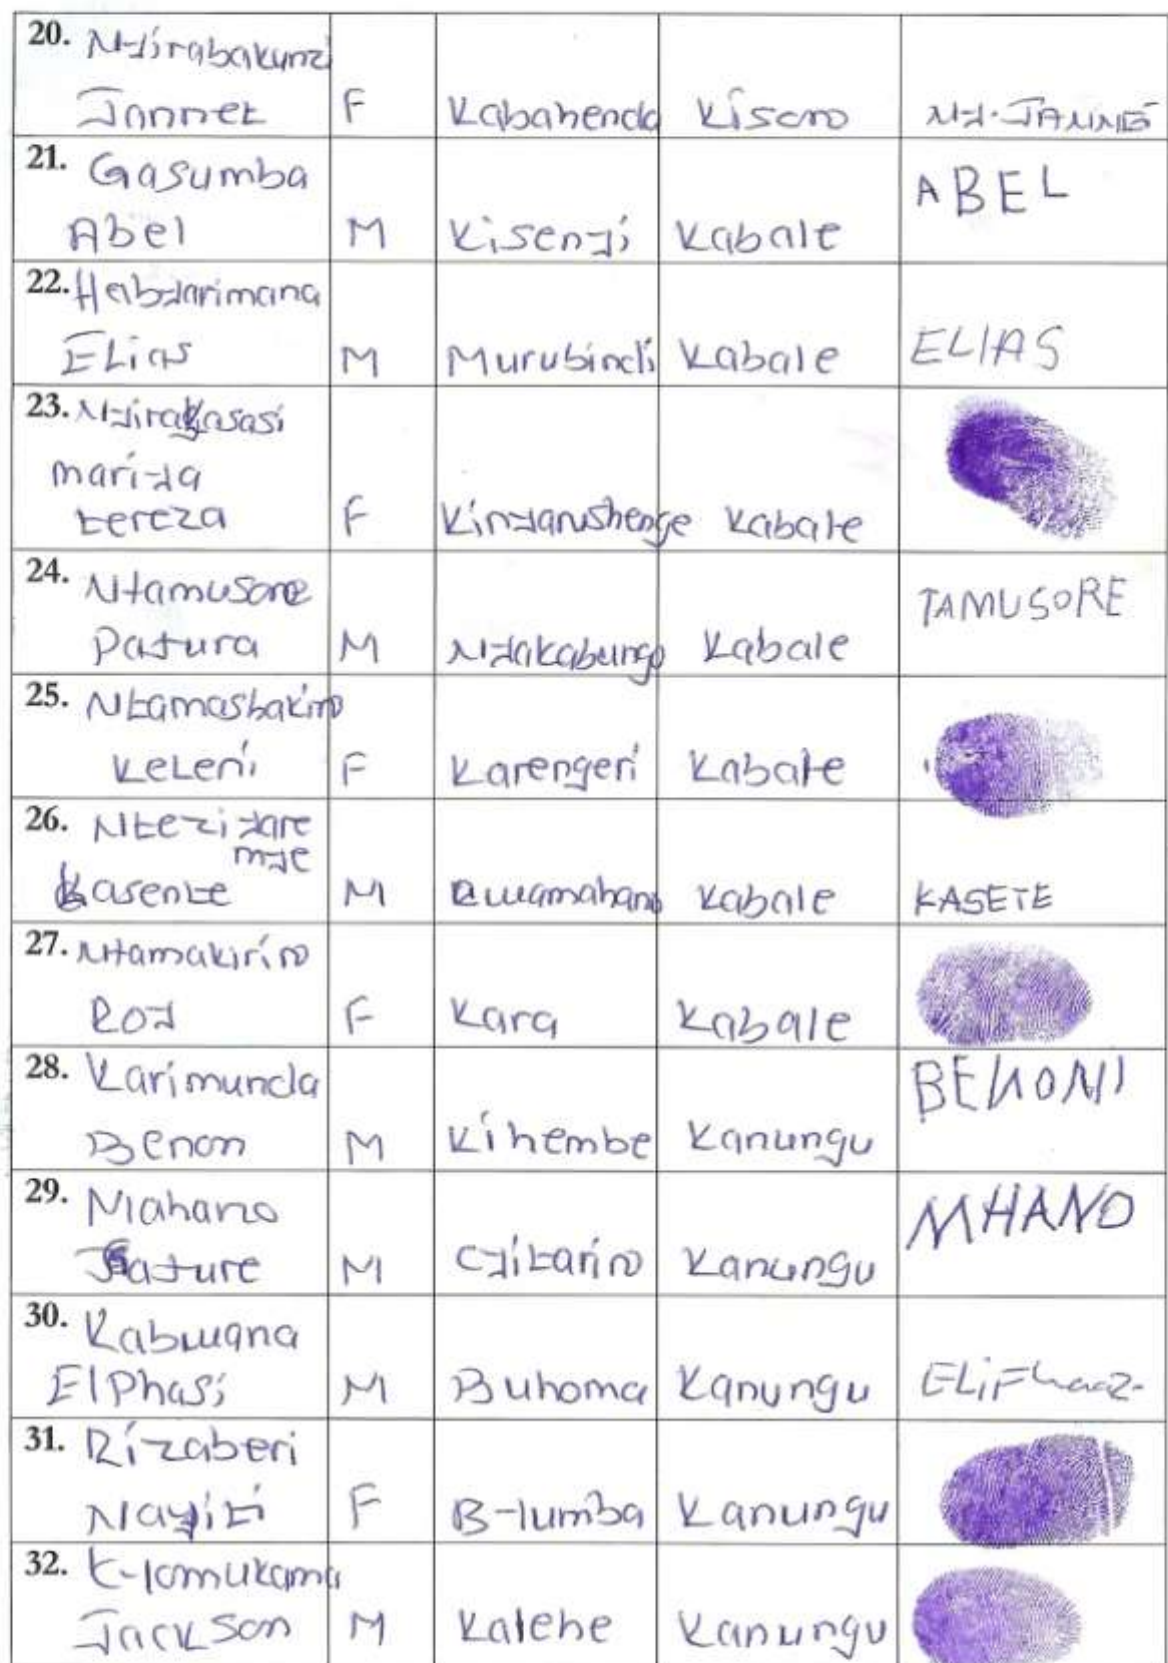 20. Nyirabakunzi
Jannet F Kabahenda Kisoro NY. JANNE
21. Gasumba
Abel M Kisenyi Kabale ABEL
22. Habyarimana
Elias M Murubindi Kabale ELIAS
23. Nyirakasasi
mariya
tereza F Kinyarushenge Kabale
24. Ntamusore
Patura M Nyakabungo Kabale TAMUSORE
25. Ntamashakiro
Keleni F Karengeri Kabale
26. Nteziyare
mye
Kasente M Rwamahano Kabale KASETE
27. Ntamakiriro
Roy F Kara Kabale
28. Karimunda
Benon M Kihembe Kanungu BENONI
29. Mahano
Jature M Cyibariro Kanungu MHANO
30. Kabwana
Elphasi M Buhoma Kanungu ELiFhaaz
31. Rizaberi
Nayiti F Byumba Kanungu
32. Tyomukama
Jackson M Kalehe Kanungu